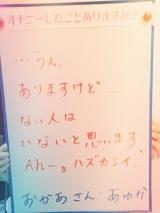 オナニーしたことありますか？
…うん、
ありますけど…
ない人は
いないと思います
Ahー。ハズカシイ。
おかあさん あゆか